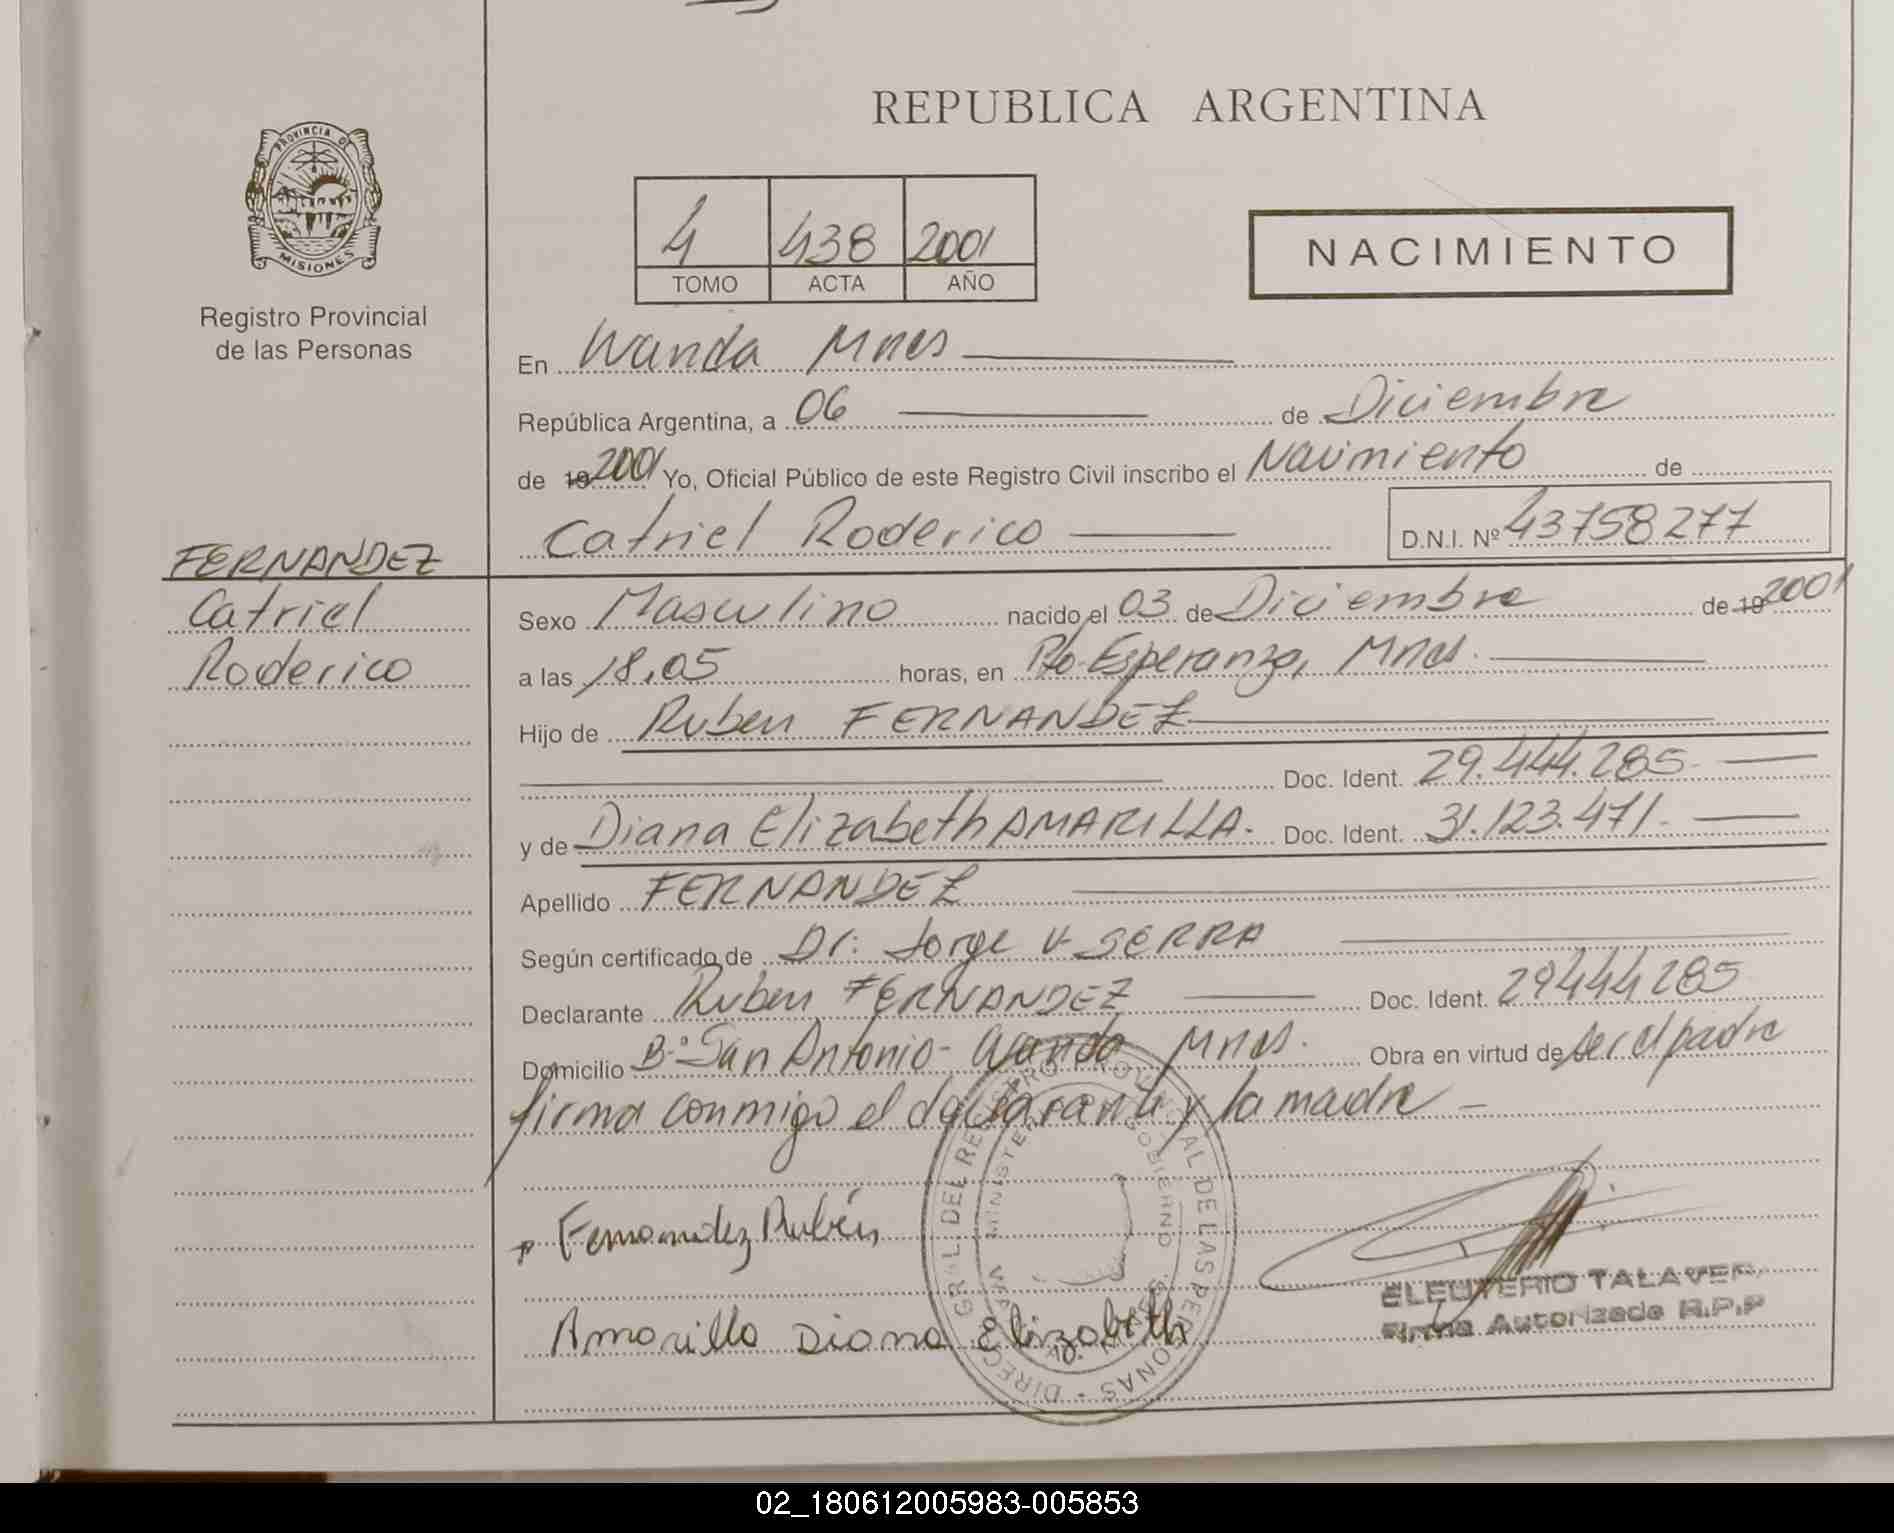 REPUBLICA ARGENTINA
PROVINCIA DE
MISIONES
Registro Provincial
de las Personas
4 438 2001
TOMO ACTA AÑO
NACIMIENTO
En Wanda Mnes
República Argentina, a 06 de Diciembre
de 19 2001 Yo, Oficial Público de este Registro Civil inscribo el Nacimiento de
Catriel Roderico D.N.I. Nº 43758277
FERNANDEZ
Catriel
Roderico
Sexo Masculino nacido el 03 de Diciembre de 19 2001
a las 18.05 horas, en Pto. Esperanza, Mnes.
Hijo de Ruben FERNANDEZ
Doc. Ident. 29.444.285-
y de Diana Elizabeth AMARILLA.- Doc. Ident. 31.123.471.-
Apellido FERNANDEZ
Según certificado de Dr. Jorge V. SERRA
Declarante Ruben FERNANDEZ Doc. Ident. 29444285
Domicilio B.º San Antonio- Wanda Mnes. Obra en virtud de ser el padre
firma conmigo el declarante y la madre -
Fernandez Rubén
Amarilla Diana Elizabeth
DIREC. GRAL. DEL REGISTRO PROVINCIAL DE LAS PERSONAS
MINISTERIO GOBIERNO
ELEUTERIO TALAVER
Firma Autorizada R.P.P
02_180612005983-005853